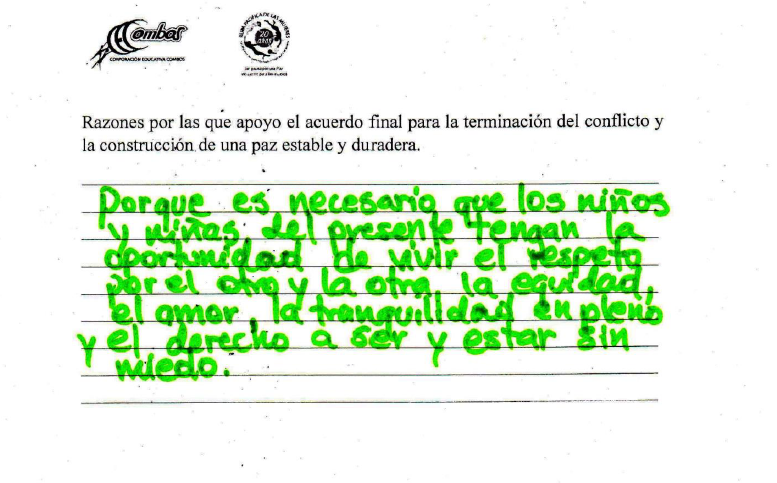 Combos
CORPORACIÓN EDUCATIVA COMBOS
RUTA PACÍFICA DE LAS MUJERES
20
años
Razones por las que apoyo el acuerdo final para la terminación del conflicto y
la construcción de una paz estable y duradera.
Porque es necesario que los niños
y niñas del presente tengan la
oportunidad de vivir el respeto
por el otro y la otra, la equidad,
el amor, la tranquilidad en pleno
y el derecho a ser y estar sin
miedo.